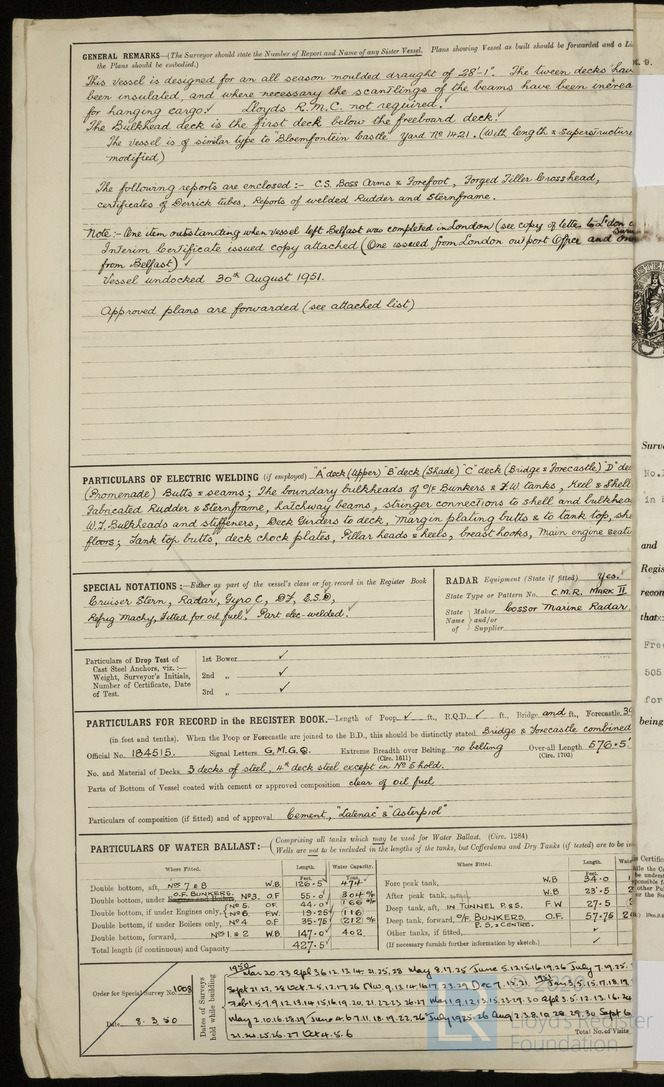 GENERAL REMARKS—(The Surveyor should state the Number of Report and Name of any Sister Vessel. Plans showing Vessel as built should be forwarded and a Li
the Plans should be embodied.)
This vessel is designed for an all season moulded draught of 28'-1". The tween decks hav
been insulated, and where necessary the scantlings of the beams have been increa
for hanging cargo. Lloyds R.M.C. not required.
The Bulkhead deck is the first deck below the freeboard deck.
The vessel is of similar type to "Bloemfontein Castle" Yard No 1421. (With length & Superstructure
modified)
The following reports are enclosed :- C.S. Boss Arms & Forefoot, Forged Tiller Crosshead,
certificates of Derrick tubes, Reports of welded Rudder and Sternframe.
Note :- One item outstanding when vessel left Belfast was completed in London (see copy of letter to
Interim Certificate issued copy attached (One issued from London outport Office and one
from Belfast)
Vessel undocked 30th August 1951.
Approved plans are forwarded (see attached list)
PARTICULARS OF ELECTRIC WELDING (if employed) "A" deck (Upper) "B" deck (Shade) "C" deck (Bridge & Forecastle) "D" de
(Promenade) Butts & seams; The boundary bulkheads of O/F Bunkers & F.W. tanks, Keel & Shell
Fabricated Rudder & Sternframe, hatchway beams, stringer connections to shell and bulkhea
W.T. Bulkheads and stiffeners, Deck Girders to deck, margin plating butts & to tank top, she
floors; Tank top butts, deck chock plates, Pillar heads & heels, breast hooks, Main engine seati
SPECIAL NOTATIONS :—Either as part of the vessel's class or for record in the Register Book
Cruiser Stern, Radar, Gyro C, DF, E.S.D,
Refrig Machy, Fitted for oil fuel. Part elec-welded.
RADAR Equipment (State if fitted) Yes.
State Type or Pattern No. C.M.R. Mark II
State Name of Maker and/or Supplier Cossor Marine Radar
Particulars of Drop Test of
Cast Steel Anchors, viz. :—
Weight, Surveyor's Initials,
Number of Certificate, Date
of Test.
1st Bower ✓
2nd „ ✓
3rd „ ✓
PARTICULARS FOR RECORD in the REGISTER BOOK.—Length of Poop ✓ ft., R.Q.D. ✓ ft., Bridge and ft., Forecastle
(in feet and tenths). When the Poop or Forecastle are joined to the B.D., this should be distinctly stated Bridge & Forecastle combined
Official No. 184515. Signal Letters G.M.G.Q. Extreme Breadth over Belting no belting Over-all Length 576.5'
(Circ. 1611) (Circ. 1703)
No. and Material of Decks 3 decks of steel, 4th deck steel except in No 5 hold.
Parts of Bottom of Vessel coated with cement or approved composition clear of oil fuel
Particulars of composition (if fitted) and of approval Cement, "Latenac" & "Asterpiol"
PARTICULARS OF WATER BALLAST :—(Comprising all tanks which may be used for Water Ballast. (Circ. 1284)
Wells are not to be included in the lengths of the tanks, but Cofferdams and Dry Tanks (if tested) are to be in
Where Fitted. Length. Water Capacity.
Feet. Tons.
Double bottom, aft, Nos 7 & 8 W.B. 126.5 474
O.F. BUNKERS. No3. O.F 55.0
No 5 O.F. 44.0
Double bottom, if under Engines only, No 6. F.W. 19.25
Double bottom, if under Boilers only, No 4 O.F 35.75
Double bottom, forward, Nos 1 & 2 W.B 147.0 402
Total length (if continuous) and Capacity 427.5
Where Fitted. Length.
Feet.
Fore peak tank, W.B 34.0
After peak tank, W.B 23.5
Deep tank, aft, IN TUNNEL P & S, F W 27.5
Deep tank, forward, O/F BUNKERS O.F. 57.75
P. S. & CENTRE.
Other tanks, if fitted,
(If necessary furnish further information by sketch.)
Order for Special Survey No. 1008
Date 8.3.50
Dates of Surveys
held while building
1950
Total No. of Visits
Lloyd's Register
Foundation
Surve
and
Regis
recon
that:
505
for
being